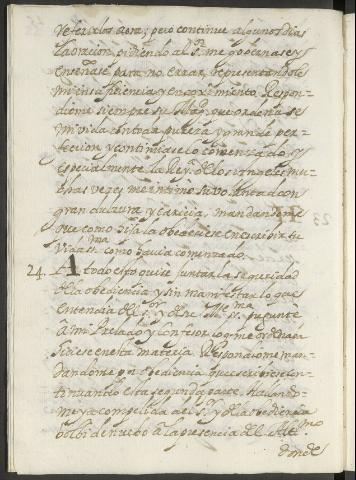 referirlos aora; pero continue algunos dias
la oracion pidiendo al S.r me governase y
enseñase para no errar, representandole
mi insipiencia y encogimiento. Respon=
diome siempre su Mag.d que ordenase
mi vida con toda pureza y grande per=
feccion y continuase lo comenzado. y
especialmente la Reyna de los angeles mu=
chas veçes me intimo su voluntad con
gran dulzura y caricia, mandandome
que como hija la obedeciese en escribir su
Vida ss.ma como havia comenzado.
24. A todo esto quise juntar la seguridad
de la obediencia y sin manifestar lo que
entendia del S.or y de su M.e ss.ma pregunte
a mi Prelado y confesor lo que me ordenava
hiciese en esta materia. Respondiome man=
dandome por obediencia que escribiese con=
tinuando esta segunda parte. Hallando=
me ya compelida del S.r y de la obediencia
bolbi de nuebo a la presencia del Alt.mo
donde